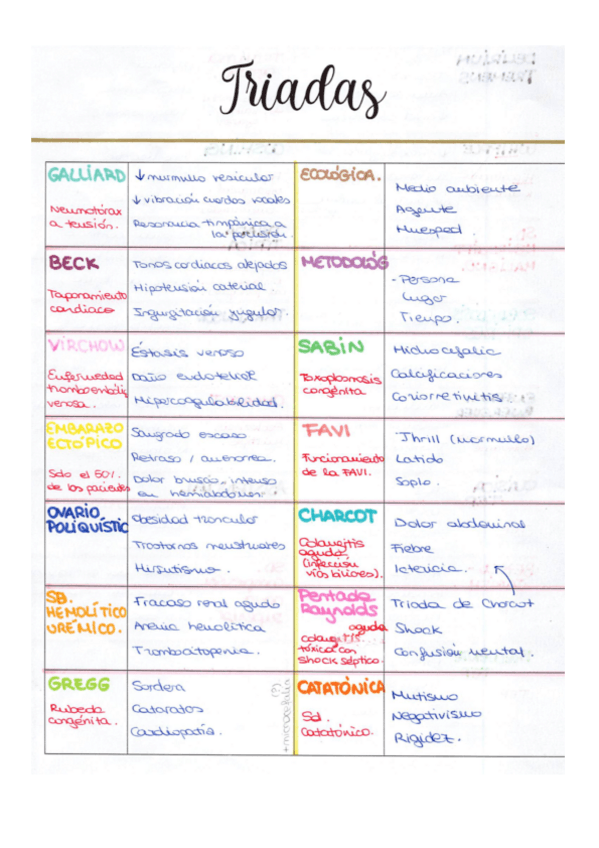 Triadas
GALLIARD
Neumotórax
a tensión.
↓ murmullo vesicular
↓ vibración cuerdas vocales
Resonancia timpánica a
la percusión.
ECOLÓGICA.
Medio ambiente
Agente
Huesped.
BECK
Taponamiento
cardiaco
Tonos cardiacos alejados
Hipotensión arterial.
Ingurgitación yugular.
METODOLÓG
- Persona
Lugar
Tiempo.
VIRCHOW
Enfermedad
tromboembóli
venosa.
Éstasis venoso
Daño endotelial
Hipercoagulabilidad.
SABIN
Toxoplasmosis
congénita
Hidrocefalia
Calcificaciones
Coriorretinitis
EMBARAZO
ECTÓPICO
Solo el 50%.
de las pacientes
Sangrado escaso
Retraso / amenorrea.
Dolor brusco, intenso
en hemiabdomen
FAVI
Funcionamiento
de la FAVI.
Thrill (murmullo)
Latido
Soplo.
OVARIO
POLIQUÍSTIC
Obesidad troncular
Trastornos menstruales
Hirsutismo.
CHARCOT
Colangitis
aguda
(infección
vías biliares).
Dolor abdominal
Fiebre
Ictericia.
SB.
HEMOLÍTICO
URÉMICO.
Fracaso renal agudo
Anemia hemolítica
Trombocitopenia.
Pentada
Raynolds
aguda
colangitis
tóxica con
shock séptico.
Triada de Charcot
Shock
Confusión mental.
GREGG
Rubeola
congénita.
Sordera
Cataratas
Cardiopatía.
+microcefalia
(?)
CATATÓNICA
Sd.
Catatónico.
Mutismo
Negativismo
Rigidez.